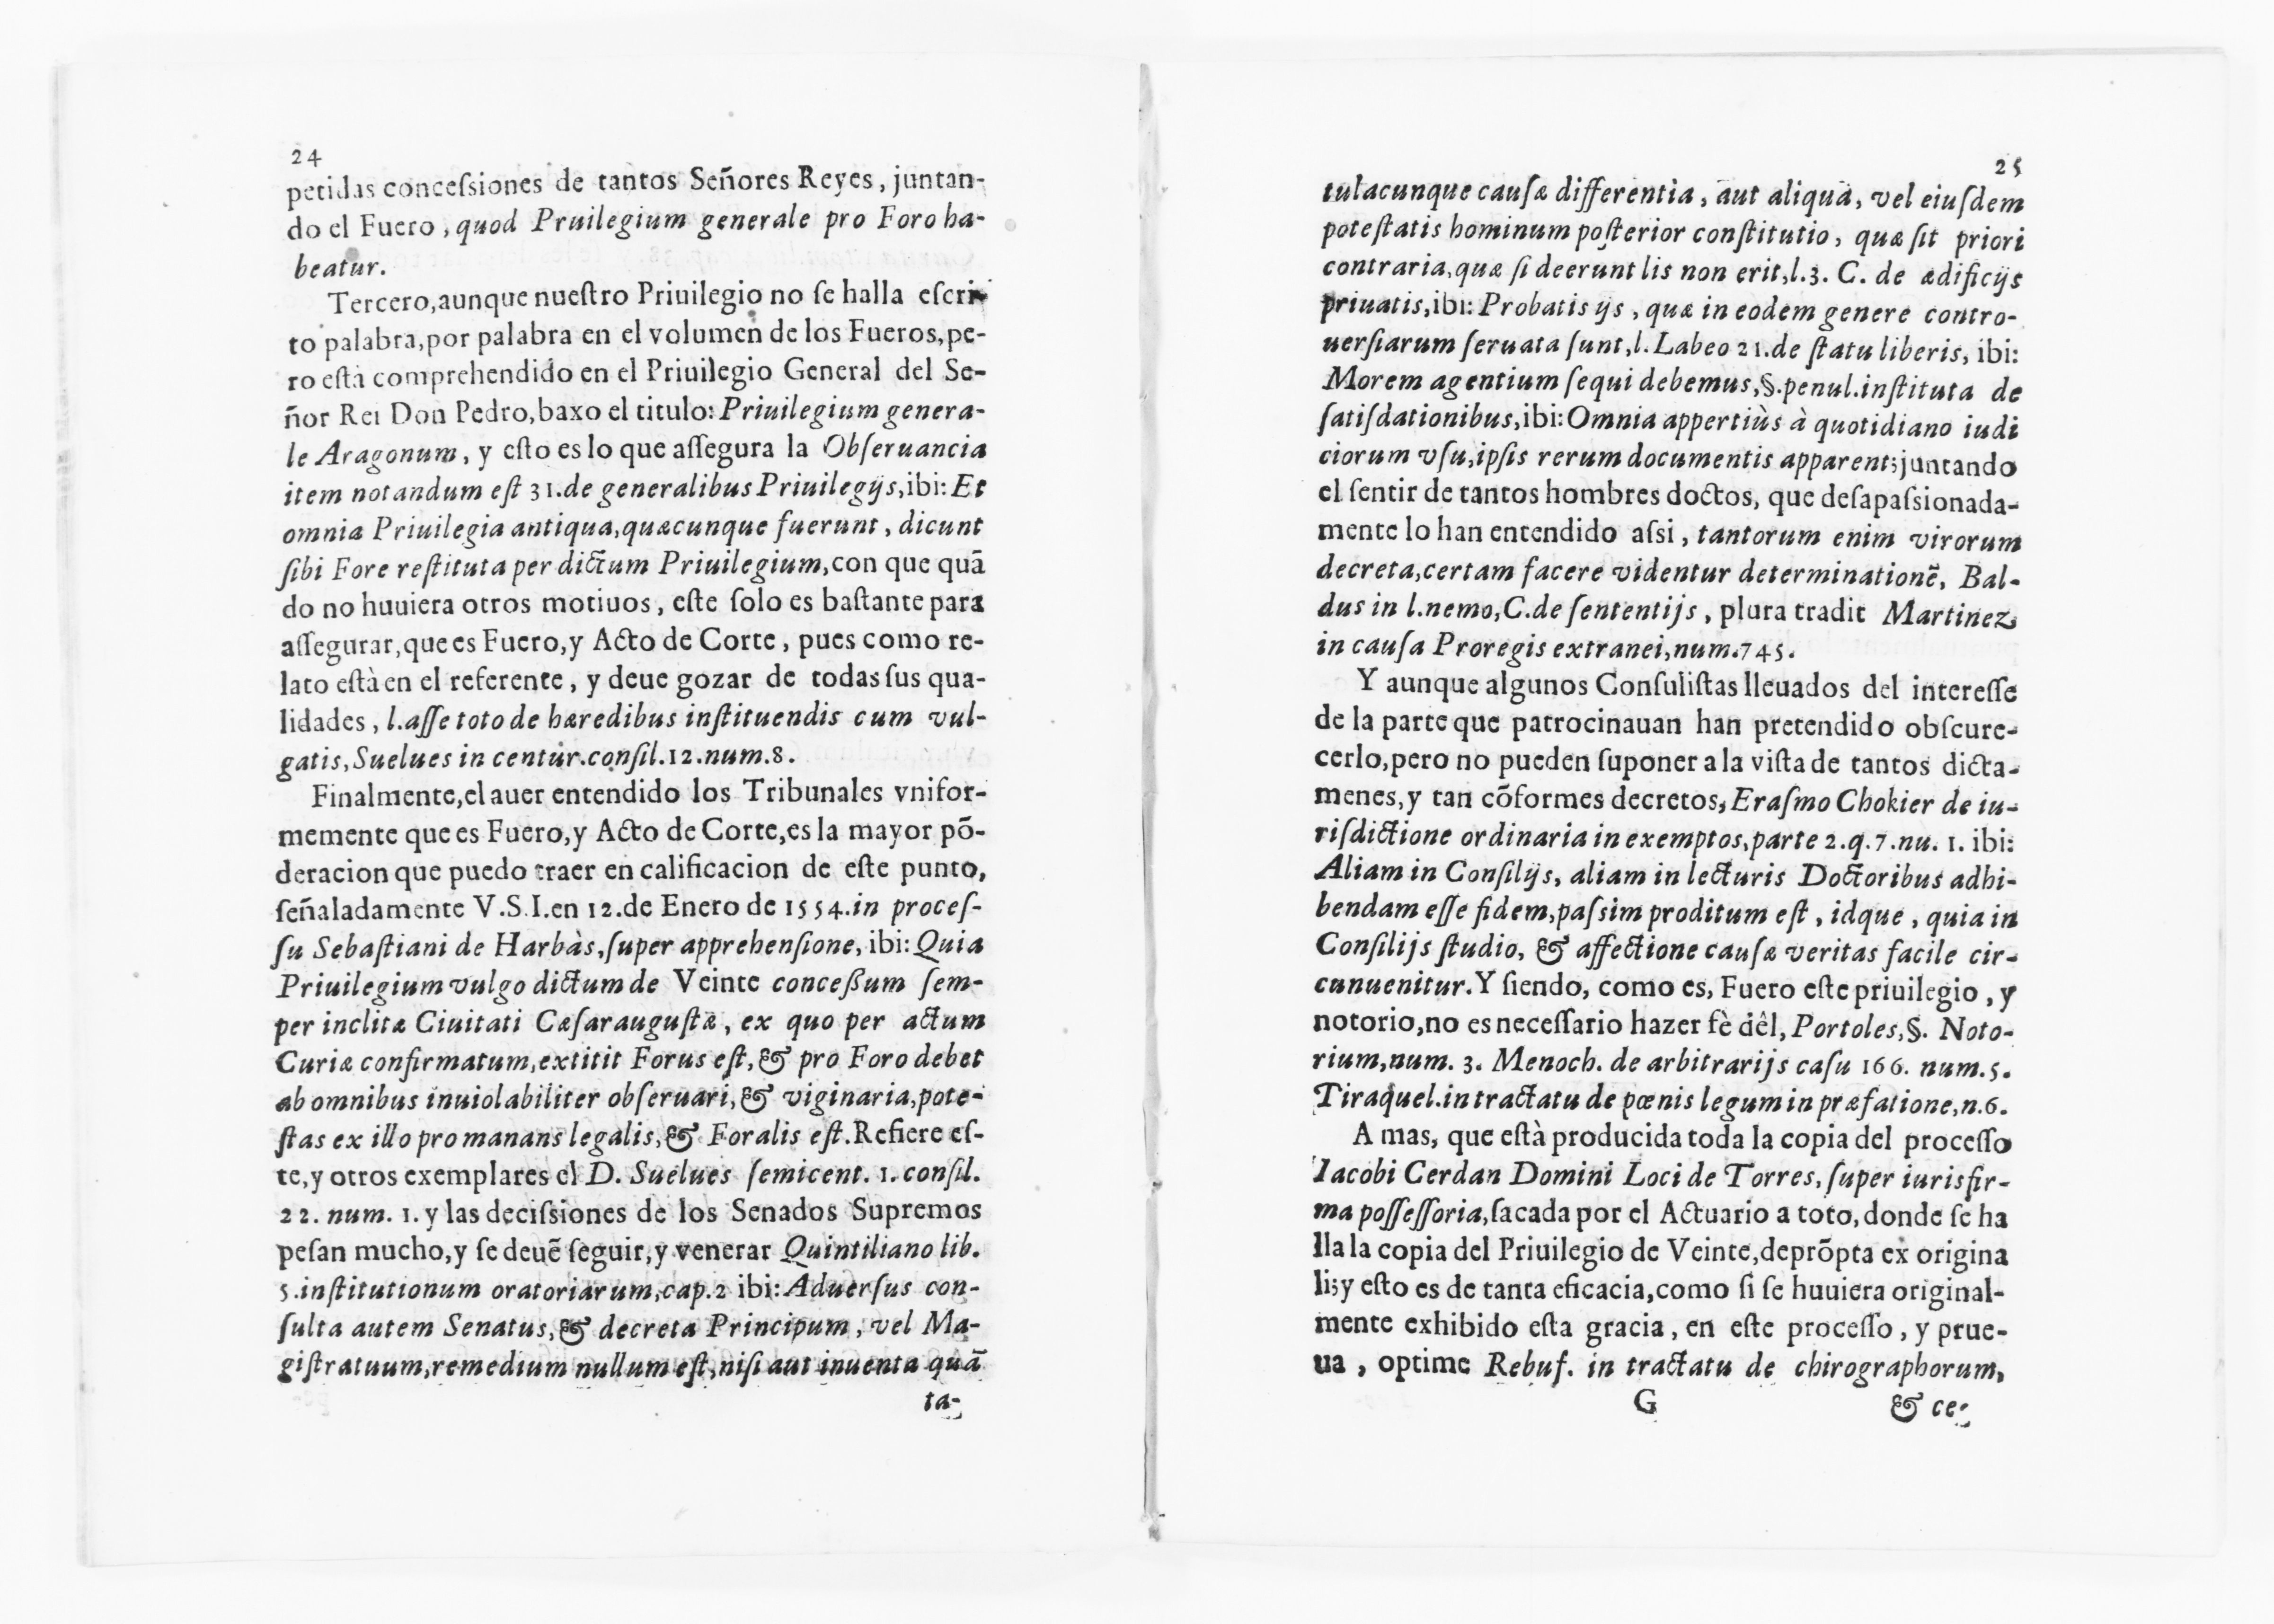 24
petidas concеſsiones de tantos Señores Reyes, juntan-
do el Fuero, quod Pruilegium generale pro Foro ha-
beatur.
Tercero,aunque nueſtro Priuilegio no ſe halla eſcri-
to palabra,por palabra en el volumen de los Fueros,pe-
ro eſtà comprehendido en el Priuilegio General del Se-
ñor Rei Don Pedro,baxo el titulo: Priuilegium genera-
le Aragonum, y eſto es lo que aſſegura la Obſeruancia
item notandum eſt 31.de generalibus Priuilegijs,ibi: Et
omnia Priuilegia antiqua,quæcunque fuerunt, dicunt
ſibi Fore reſtituta per dictum Priuilegium,con que quā
do no huuiera otros motiuos, eſte ſolo es baſtante para
aſſegurar,que es Fuero,y Acto de Corte, pues como re-
lato eſtà en el referente, y deue gozar de todas ſus qua-
lidades, l.aſſe toto de hæredibus inſtituendis cum vul-
gatis,Suelues in centur.conſil.12.num.8.
Finalmente,el auer entendido los Tribunales vnifor-
memente que es Fuero,y Acto de Corte,es la mayor pō-
deracion que puedo traer en calificacion de eſte punto,
ſeñaladamente V.S.I.en 12.de Enero de 1554.in proceſ-
ſu Sebaſtiani de Harbàs,ſuper apprehenſione, ibi: Quia
Priuilegium vulgo dictum de Veinte conceßum ſem-
per inclitæ Ciuitati Cæſarauguſtæ, ex quo per actum
Curiæ confirmatum,extitit Forus eſt,& pro Foro debet
ab omnibus inuiolabiliter obſeruari,& viginaria,pote-
ſtas ex illo promanans legalis,& Foralis eſt.Refiere eſ-
te,y otros exemplares el D. Suelues ſemicent. 1. conſil.
22. num. 1. y las deciſsiones de los Senados Supremos
peſan mucho,y ſe deuē ſeguir,y venerar Quintiliano lib.
5.inſtitutionum oratoriarum,cap.2 ibi: Aduerſus con-
ſulta autem Senatus,& decreta Principum, vel Ma-
giſtratuum,remedium nullum eſt,niſi aut inuenta quā
ta-
25
tulacunque cauſæ differentia, aut aliqua, vel eiuſdem
poteſtatis hominum poſterior conſtitutio, quæ ſit priori
contraria,quæ ſi deerunt lis non erit,l.3. C. de ædificijs
priuatis,ibi: Probatis ijs, quæ in eodem genere contro-
uerſiarum ſeruata ſunt,l. Labeo 21.de ſtatu liberis, ibi:
Morem agentium ſequi debemus,§.penul.inſtituta de
ſatiſdationibus,ibi: Omnia appertiùs à quotidiano iudi
ciorum vſu,ipſis rerum documentis apparent;juntando
el ſentir de tantos hombres doctos, que deſapaſsionada-
mente lo han entendido aſsi, tantorum enim virorum
decreta,certam facere videntur determinationē, Bal-
dus in l.nemo,C.de ſententijs, plura tradit Martinez
in cauſa Proregis extranei,num.745.
Y aunque algunos Conſuliſtas lleuados del intereſſe
de la parte que patrocinauan han pretendido obſcure-
cerlo,pero no pueden ſuponer a la viſta de tantos dicta-
menes,y tan cōformes decretos, Eraſmo Chokier de iu-
riſdictione ordinaria in exemptos,parte 2.q.7.nu. 1. ibi:
Aliam in Conſilijs, aliam in lecturis Doctoribus adhi-
bendam eſſe fidem,paſsim proditum eſt, idque, quia in
Conſilijs ſtudio, & affectione cauſæ veritas facile cir-
cunuenitur.Y ſiendo, como es, Fuero eſte priuilegio, y
notorio,no es neceſſario hazer fè dêl, Portoles,§. Noto-
rium,num. 3. Menoch. de arbitrarijs caſu 166. num.5.
Tiraquel.in tractatu de pœnis legum in præfatione,n.6.
A mas, que eſtà producida toda la copia del proceſſo
Iacobi Cerdan Domini Loci de Torres, ſuper iurisfir-
ma poſſeſſoria,ſacada por el Actuario a toto,donde ſe ha
lla la copia del Priuilegio de Veinte,deprōpta ex origina
li;y eſto es de tanta eficacia,como ſi ſe huuiera original-
mente exhibido eſta gracia, en eſte proceſſo, y prue-
ua, optime Rebuf. in tractatu de chirographorum,
G & ce-